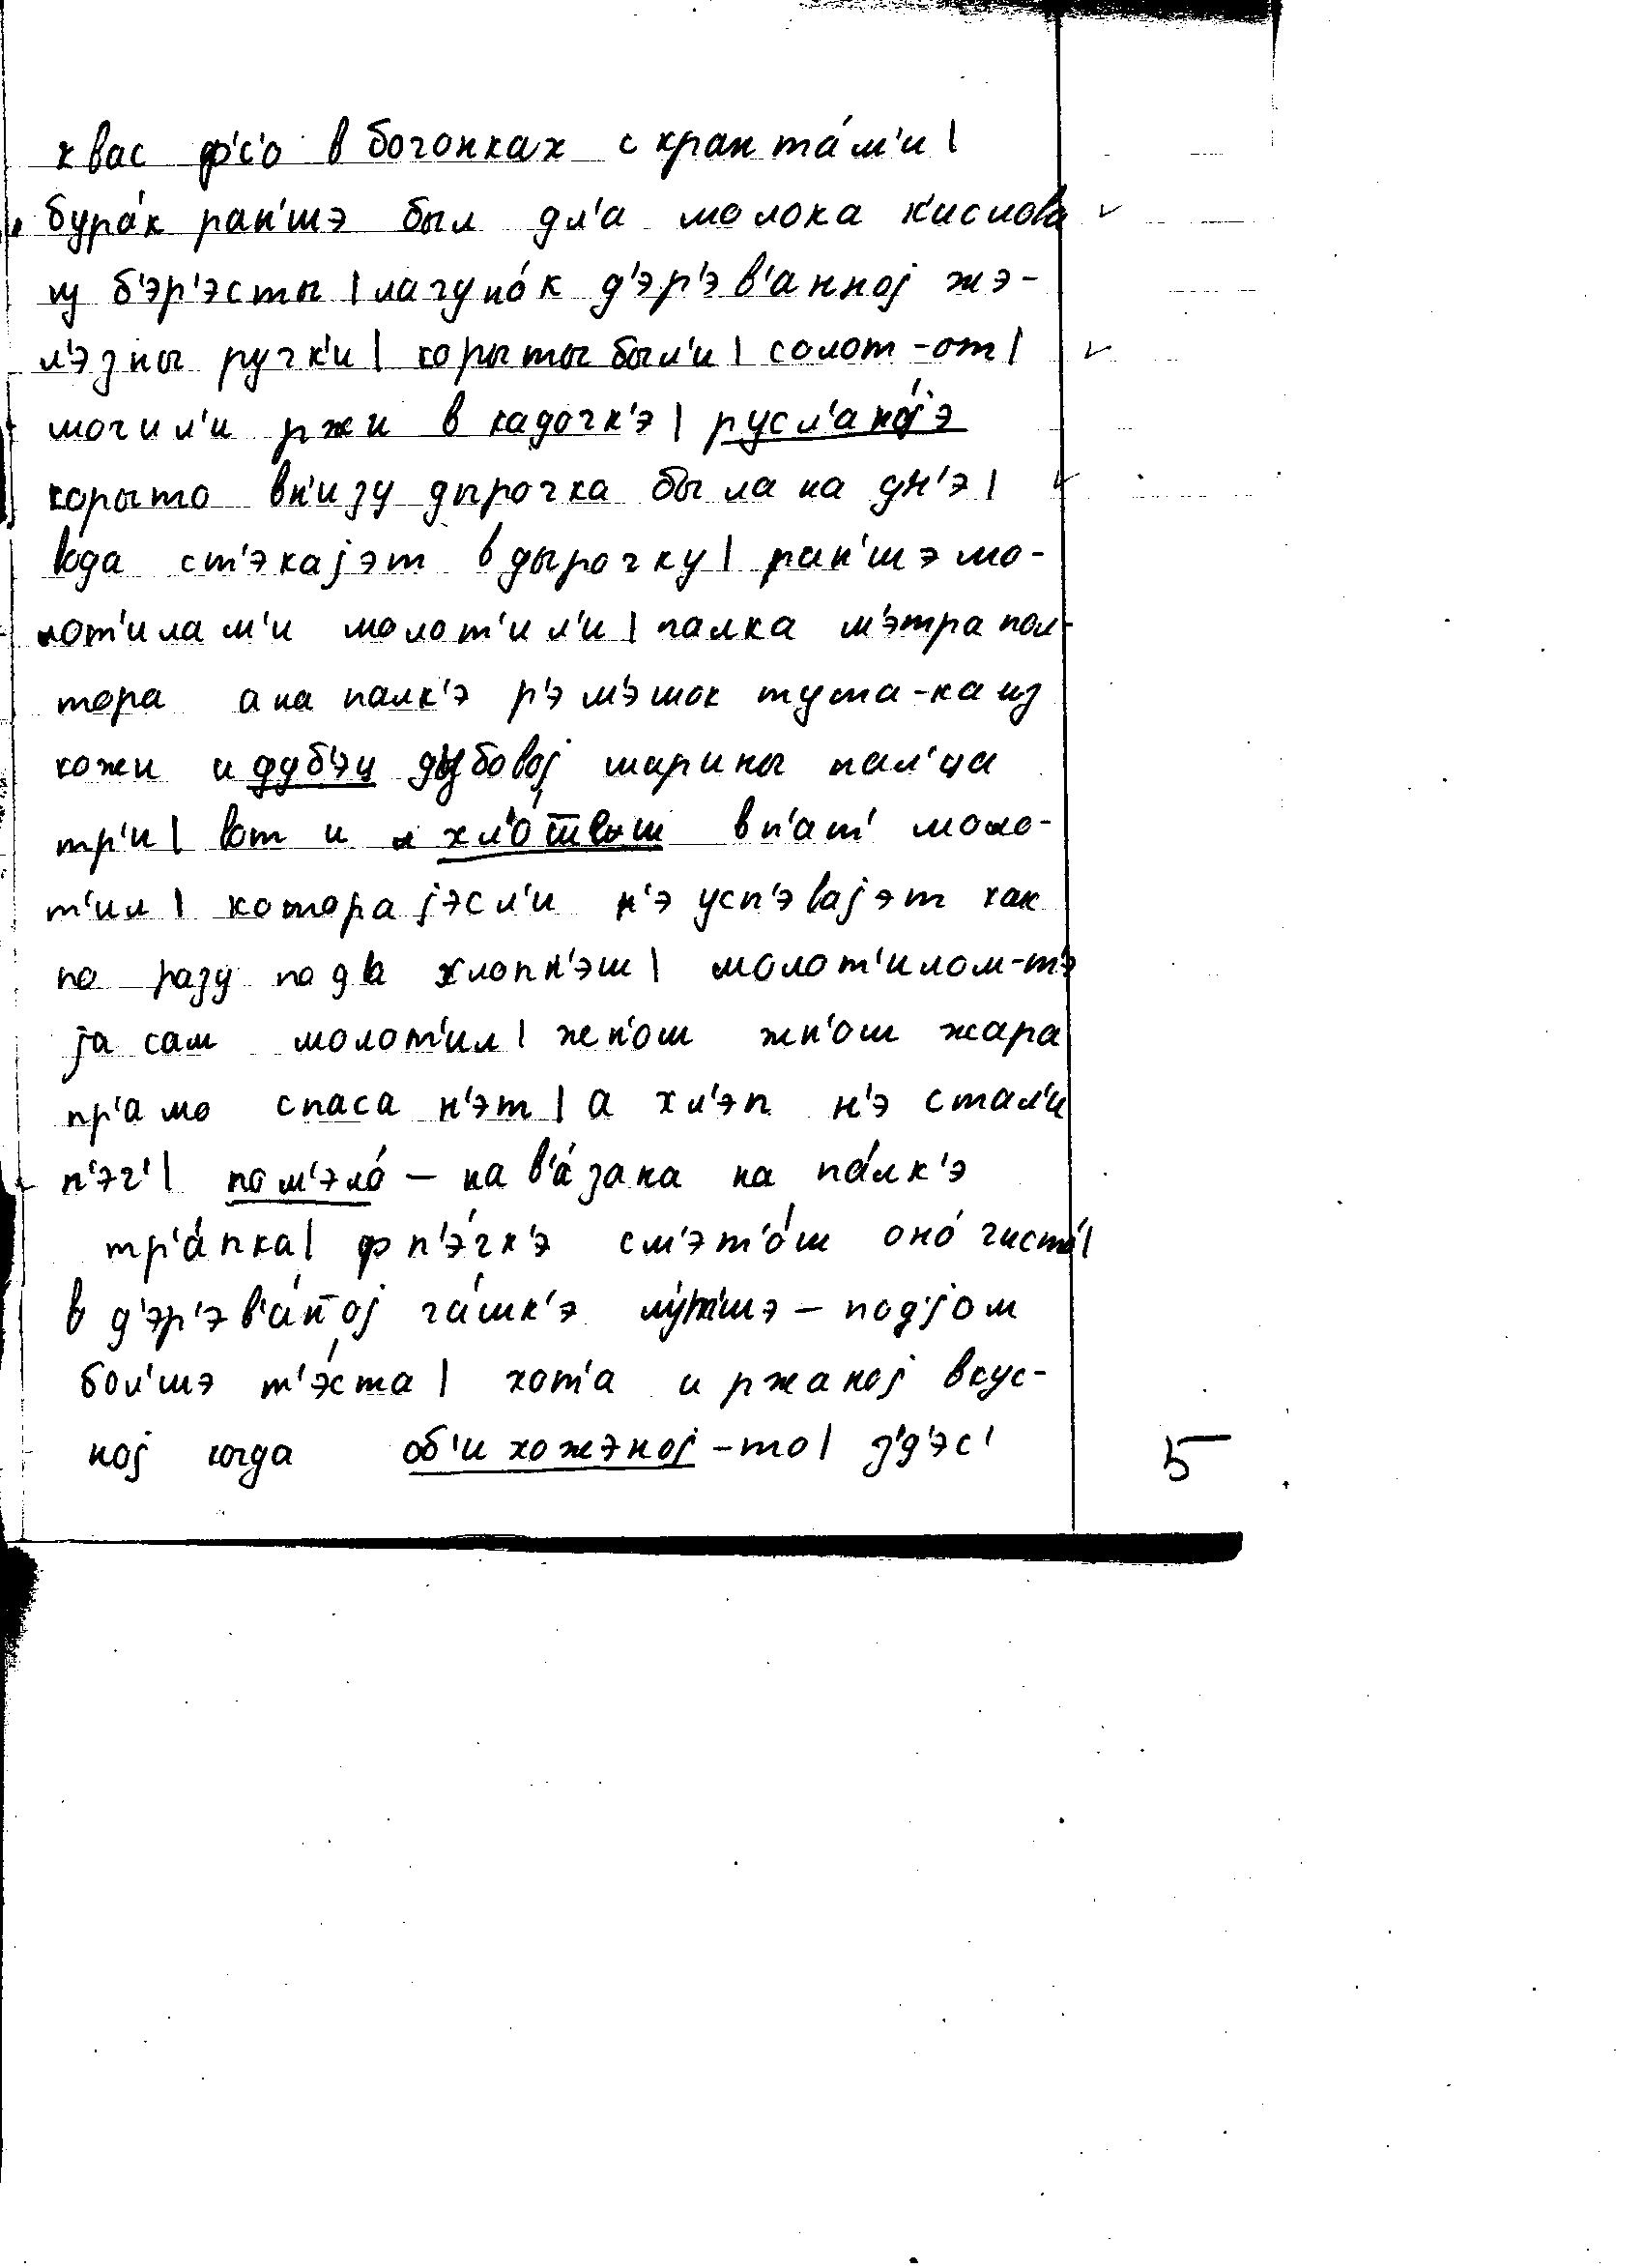 квас ф'с'о в бочонках с крантáм'и |
бурáк ран'шэ был дл'а молока к'ислова
из б'эр'эсты | лагунóк д'эр'эв'анноj жэ-
л'эзны ручк'и | корыты был'и | солот-от |
мочил'и ржи в кадочк'э | русл'анójэ
корыто вн'изу дырочка была на дн'э |
вода ст'экаjэт в дырочку | ран'шэ мо-
лот'илам'и молот'ил'и | палка м'этра пол-
тора а на палк'э р'эм'эшок тута-ка из
кожи и дуб'эц дубовоj шырины пал'ца
тр'и | вот и хл'ó в п'ат' моло-
т'ил | котора jэсл'и н'э усп'эваjэт как
по разу по два хлопн'эш | молот'илом-тэ
jа сам молот'ил | жн'ош жн'ош жара
пр'амо спаса н'эт | а хл'эп н'э стал'и
п'эч' | пом'элó – на в'áзана на пáлк'э
тр'áпка | ф п'эчк'э см'эт'óш онó чистó |
в д'эр'эв'áн̄оj чáшк'э лýтшэ – подjом
бол'шэ т'э́ста | хот'а и ржаноj вкус-
ноj когда об'ихожэноj-то | з'д'эс'
5